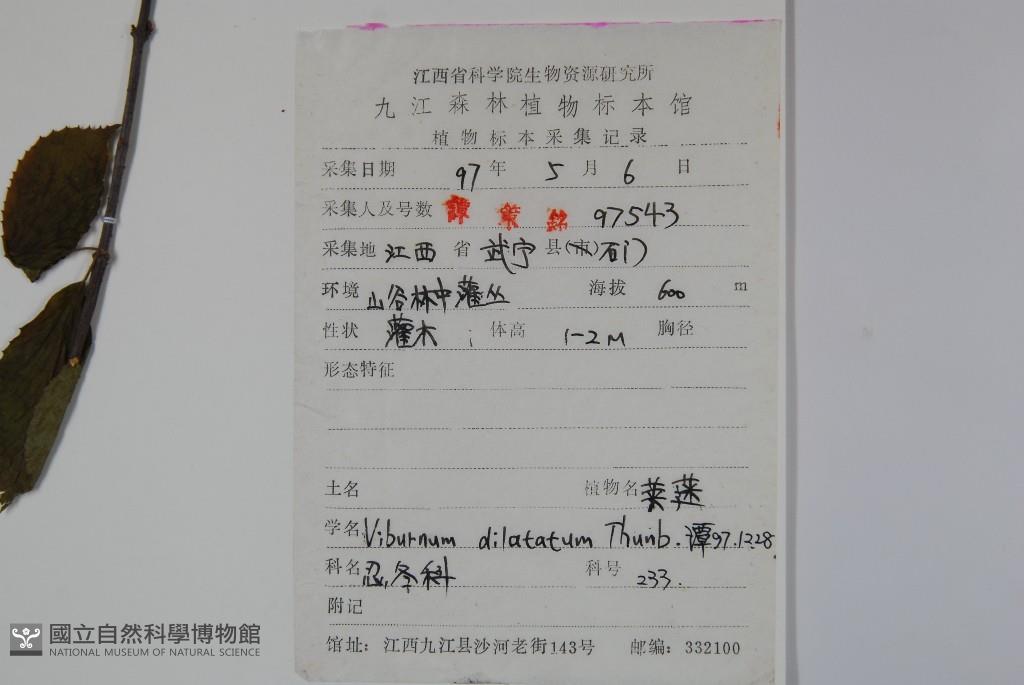 江西省科学院生物资源研究所
九江森林植物标本馆
植物标本采集记录
采集日期 97 年 5 月 6 日
采集人及号数 譚策銘 97543
采集地 江西 省 武宁 县(市) 石门
环境 山谷林中灌丛 海拔 600 m
性状 灌木 ; 体高 1-2M 胸径
形态特征
土名 植物名 荚蒾
学名 Viburnum dilatatum Thunb. 谭97.12.28
科名 忍冬科 科号 233.
附记
馆址: 江西九江县沙河老街143号 邮编: 332100
國立自然科學博物館
NATIONAL MUSEUM OF NATURAL SCIENCE